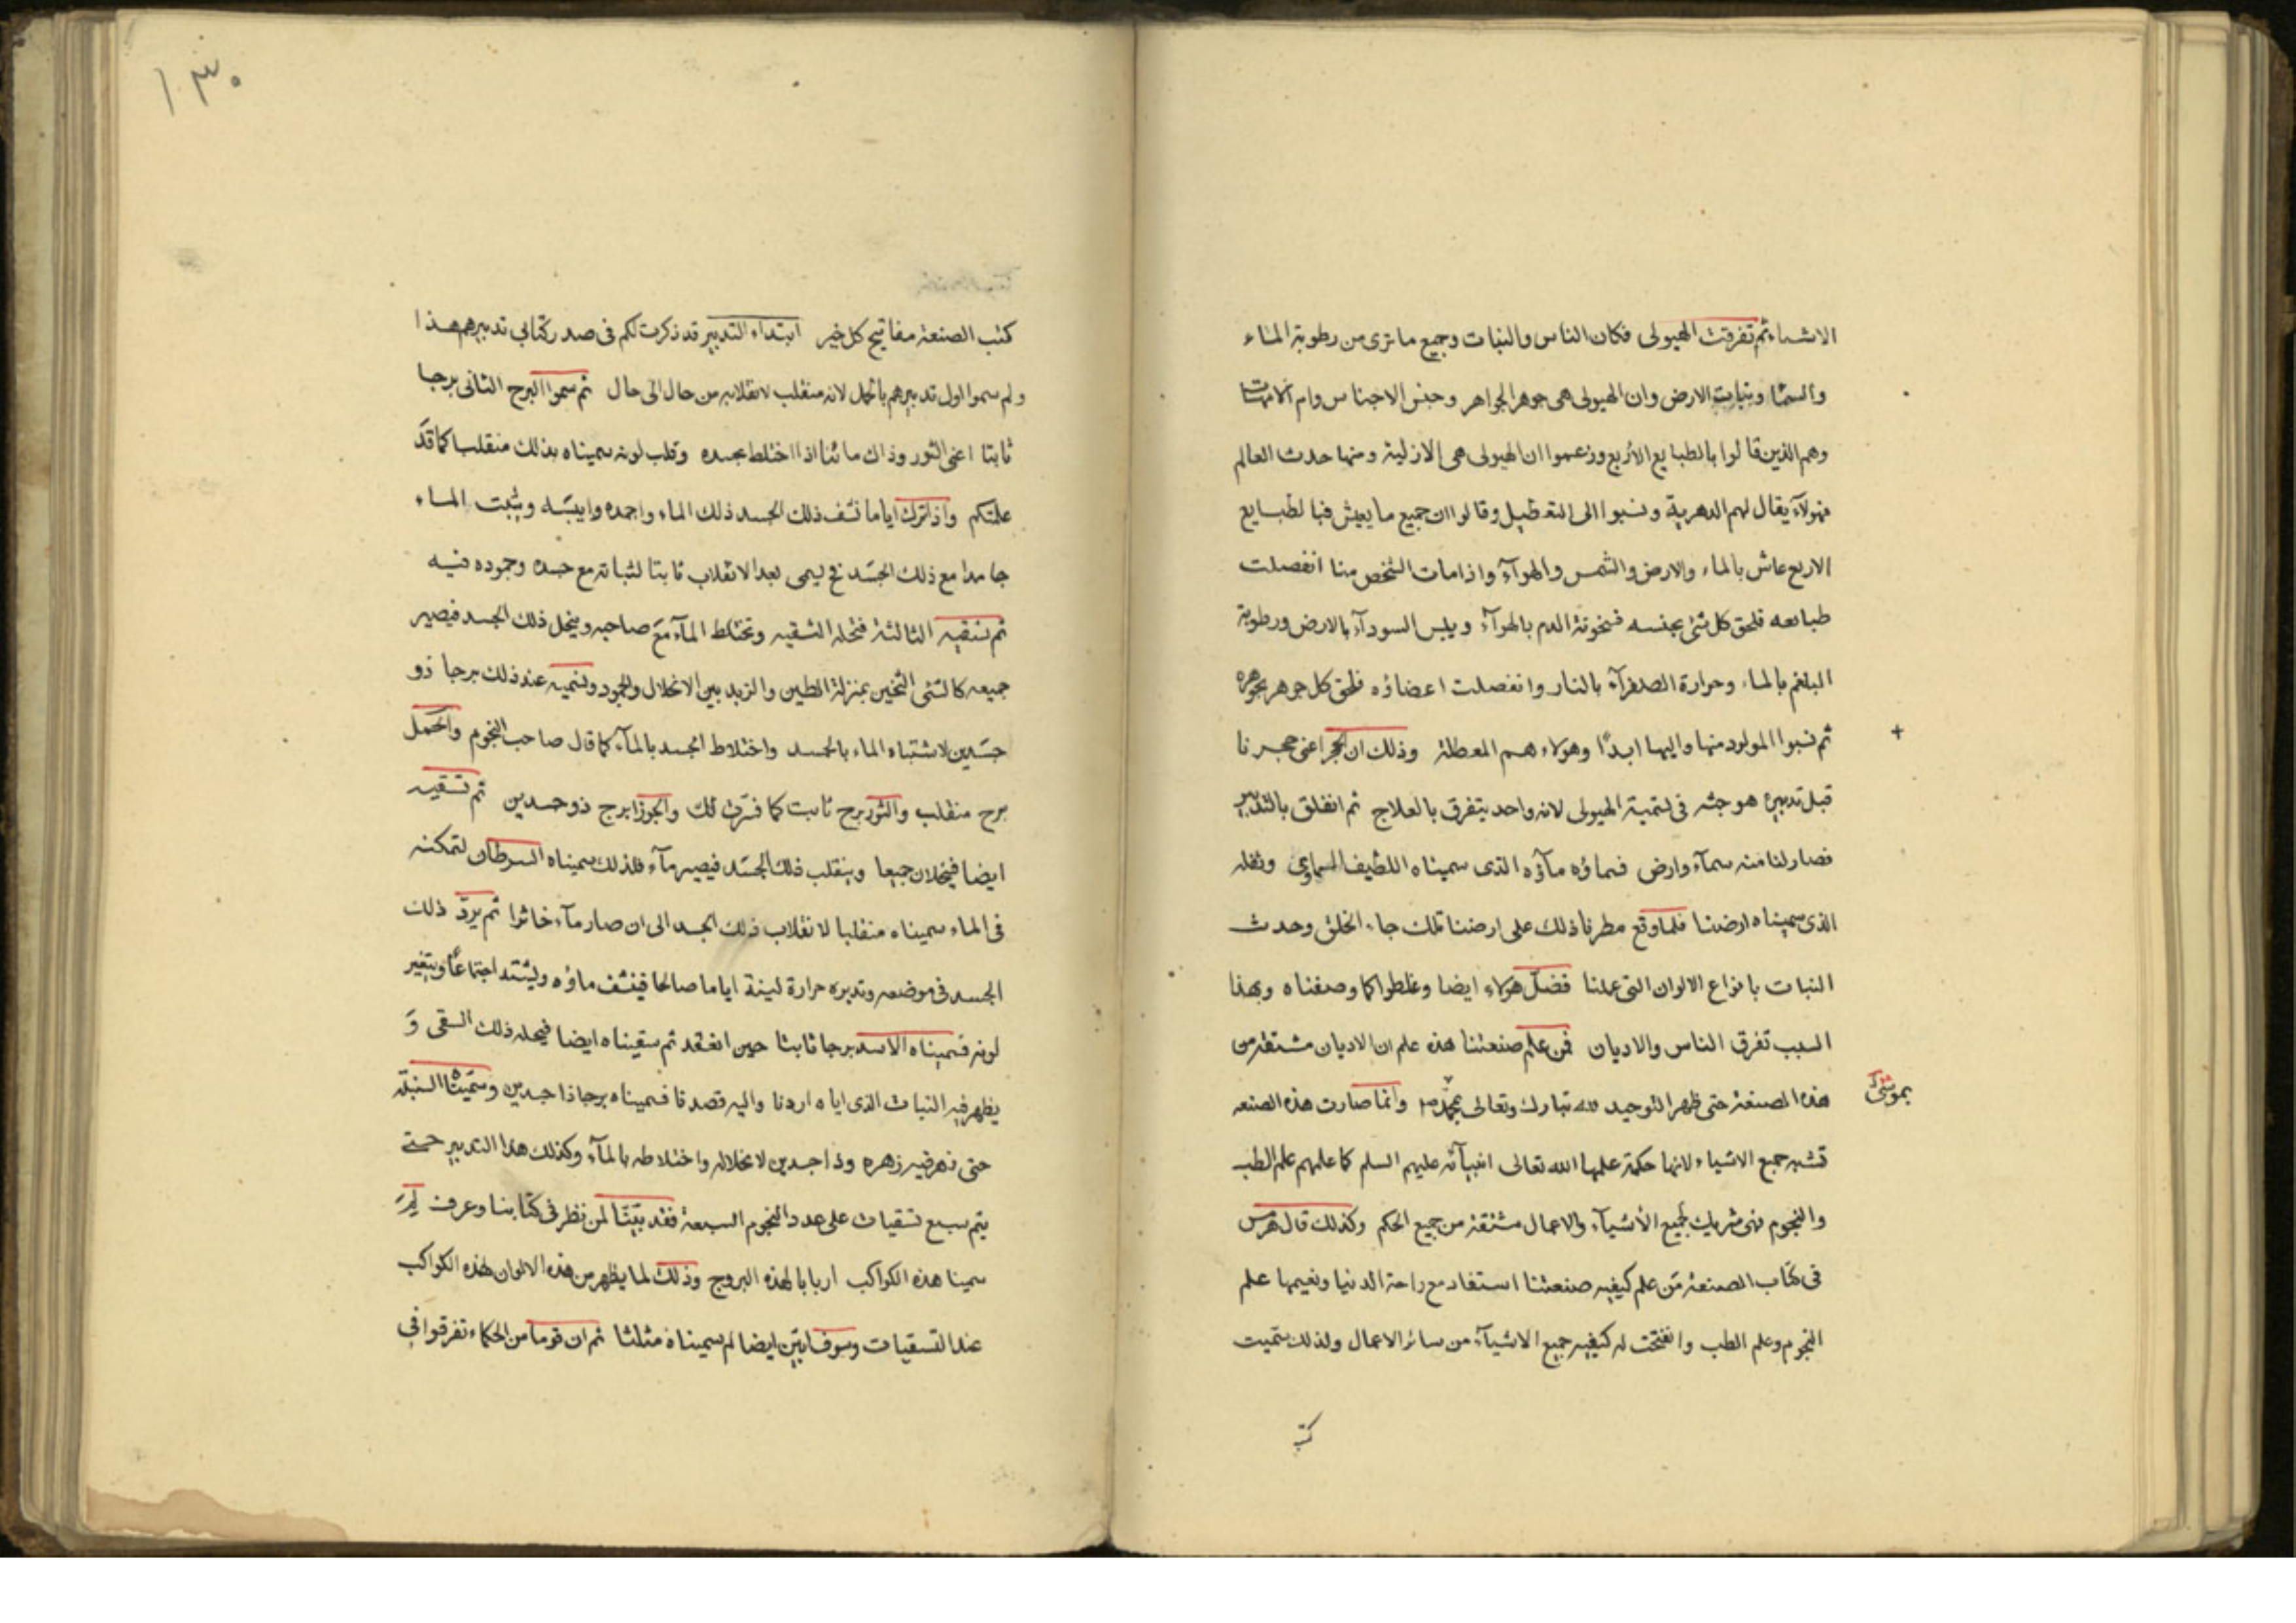 الاشياء ثم تفرقت الهيولى فكان الناس والنبات وجميع ما ترى من رطوبة الماء
والسما ونبات الارض وان الهيولى هى جوهر الجواهر وجنس الاجناس وام الامهات
وهم الذين قالوا بالطبايع الأربع وزعموا ان الهيولى هى الازلية ومنها حدث العالم
فهولآء يقال لهم الدهرية ونسبوا الى التعطيل وقالوا ان جميع ما يعيش فبالطبايع
الاربع عاش بالماء والارض والشمس والهوآء واذا مات الشخص منا انفصلت
طبائعه فلحق كل شئ بجنسه فسخونة الدم بالهوآء ويبس السودآء بالارض ورطوبة
البلغم بالماء وحرارة الصفرآء بالنار وانفصلت اعضاؤه فلحق كل جوهر بجوهره
ثم نسبوا المولود منها واليها ابدًا وهولاء هم المعطلة وذلك ان الحجر اعنى حجرنا
+
قبل تدبيره هو جثه فى تسمية الهيولى لانه واحد يتفرق بالعلاج ثم انفلق بالتدبير
فصار لنا منه سمآء وارض فسماؤه مآؤه الذى سميناه اللطيف السماوى وثفله
الذى سميناه ارضنا فلما وقع مطرنا ذلك على ارضنا تلك جاء الخلق وحدث
النبات بانواع الالوان التى عملنا فضل هولاء ايضا وغلطوا كما وصفناه وبهذا
السبب تفرق الناس والاديان فمن علم صنعتنا هذه علم ان الاديان مشتقة من
هذه الصنعة حتى ظهر التوحيد لله تبارك وتعالى بمحمد وانما صارت هذه الصنعه
بموسى
تشبه جميع الاشياء لانها حكمة علمها الله تعالى انبيآئه عليهم السلم كما علمهم علم الطب
والنجوم فهى شريك لجميع الأشيآء والاعمال مشتقة من جميع الحكم وكذلك قال هرمس
فى كتاب الصنعة من علم كيفيه صنعتنا استفاد مع راحة الدنيا ونعيمها علم
النجوم وعلم الطب وانفتحت له كيفيه جميع الاشيآء من سائر الاعمال ولذلك سميت
كتب
١٣٠
كتب الصنعة مفاتيح كل خير ابتداء التدبير قد ذكرت لكم فى صدر كتابى تدبيرهم هذا
ولم سموا اول تدبيرهم بالحمل لانه منقلب لانقلابه من حال الى حال ثم سموا البرج الثانى برجا
ثابتا اعنى الثور وذاك مائنا اذا اختلط بجسده وقلب لونه سميناه بذلك منقلبا كما قد
علمتكم واذا ترك اياما نشف ذلك الجسد ذلك الماء واجمده وايبسه وثبت الماء
جامدا مع ذلك الجسد يسمى بعد الانقلاب ثابتا لثباته مع جسده وجموده فيه
ثم تسقيه الثالثة فتحله التسقيه وتختلط المآء مع صاحبه وينحل ذلك الجسد فيصير
جميعه كالشئ الثخين بمنزلة الطين والزبد بين الانحلال والجمود ونسميه عند ذلك برجا ذو
جسدين لاشتباه الماء بالجسد واختلاط الجسد بالمآء كما قال صاحب النجوم والحمل
برج منقلب والثور برج ثابت كما فسرت لك والجوزا برج ذو جسدين ثم تسقيه
ايضا فينحلان جميعا وينقلب ذلك الجسد فيصير مآء فلذلك سميناه السرطان لتمكنه
فى الماء سميناه منقلبا لانقلاب ذلك الجسد الى ان صار مآء خاثرا ثم يرد ذلك
الجسد فى موضعه وتدبره حرارة لينة اياما صالحا فينشف ماؤه ويشتد اجتماعًا ويتغير
لونه فسميناه الاسد برجا ثابتا حين انعقد ثم سقيناه ايضا فيحله ذلك السقى و
يظهر فيه النبات الذى اياه اردنا واليه قصدنا فسميناه برجا ذا جسدين وسميتها السنبلة
حتى زهر فيه زهره وذا جسدين لانحلاله واختلاطه بالمآء وكذلك هذا التدبير حتى
يتم سبع تسقيات على عدد النجوم السبعة فقد بيّنا لمن نظر فى كتابنا وعرف لم
سمينا هذه الكواكب اربابا لهذه البروج وذلك لما يظهر من هذه الالوان لهذه الكواكب
عند التسقيات وسوف ابيّن ايضا لم سميناه مثلثا ثم ان قوما من الحكماء تفرقوا فى